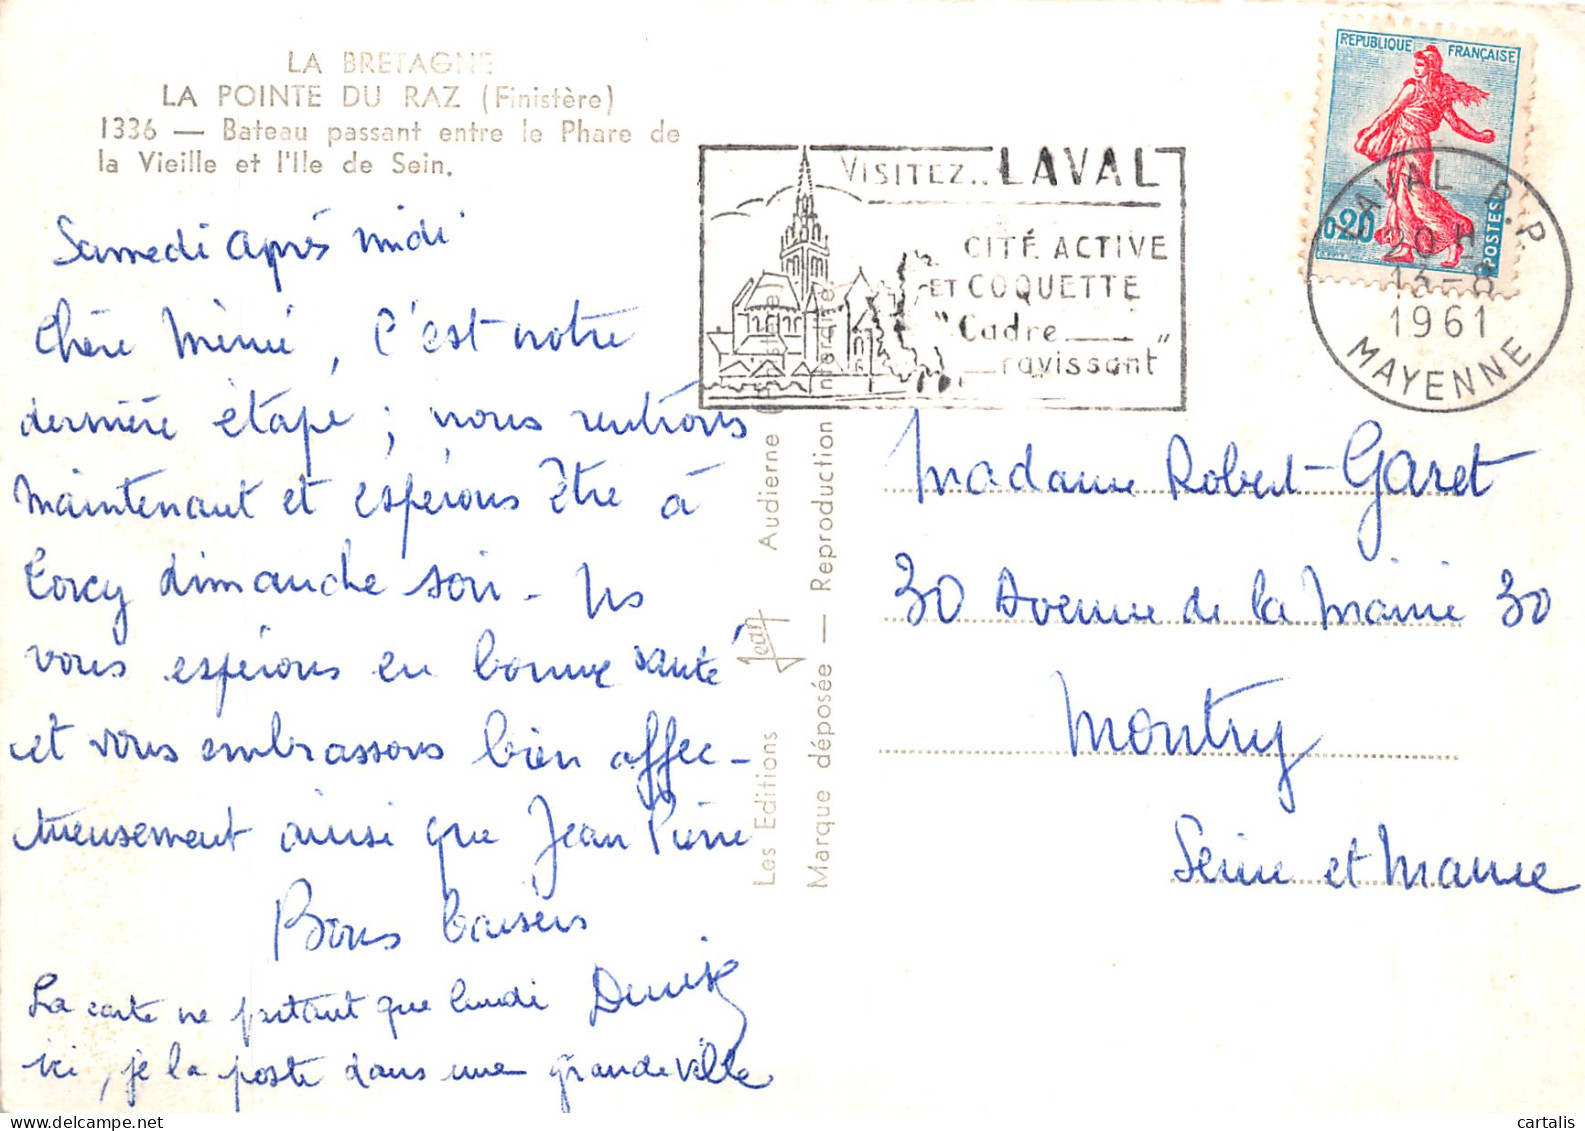 LA BRETAGNE
LA POINTE DU RAZ (Finistère)
1336 — Bateau passant entre le Phare de
la Vieille et l'Ile de Sein.
Samedi après midi
Chère Mémé, C'est notre
dernière étape ; nous rentrons
maintenant et espérons être à
Torcy dimanche soir - Ns
vous espérons en bonne santé
et vous embrassons bien affec-
tueusement ainsi que Jean Pierre
Bons baisers
Denise
La carte ne partant que lundi
ici, je la poste dans une grande ville
Les Editions Jean Audierne
Marque déposée — Reproduction interdite
VISITEZ.. LAVAL
CITÉ ACTIVE
ET COQUETTE
"Cadre
ravissant"
REPUBLIQUE FRANÇAISE
0,20
POSTES
LAVAL R.P
20 H
1961
MAYENNE
Madame Robert-Garet
30 Avenue de la Mairie 30
Montry
Seine et Marne
cartalis